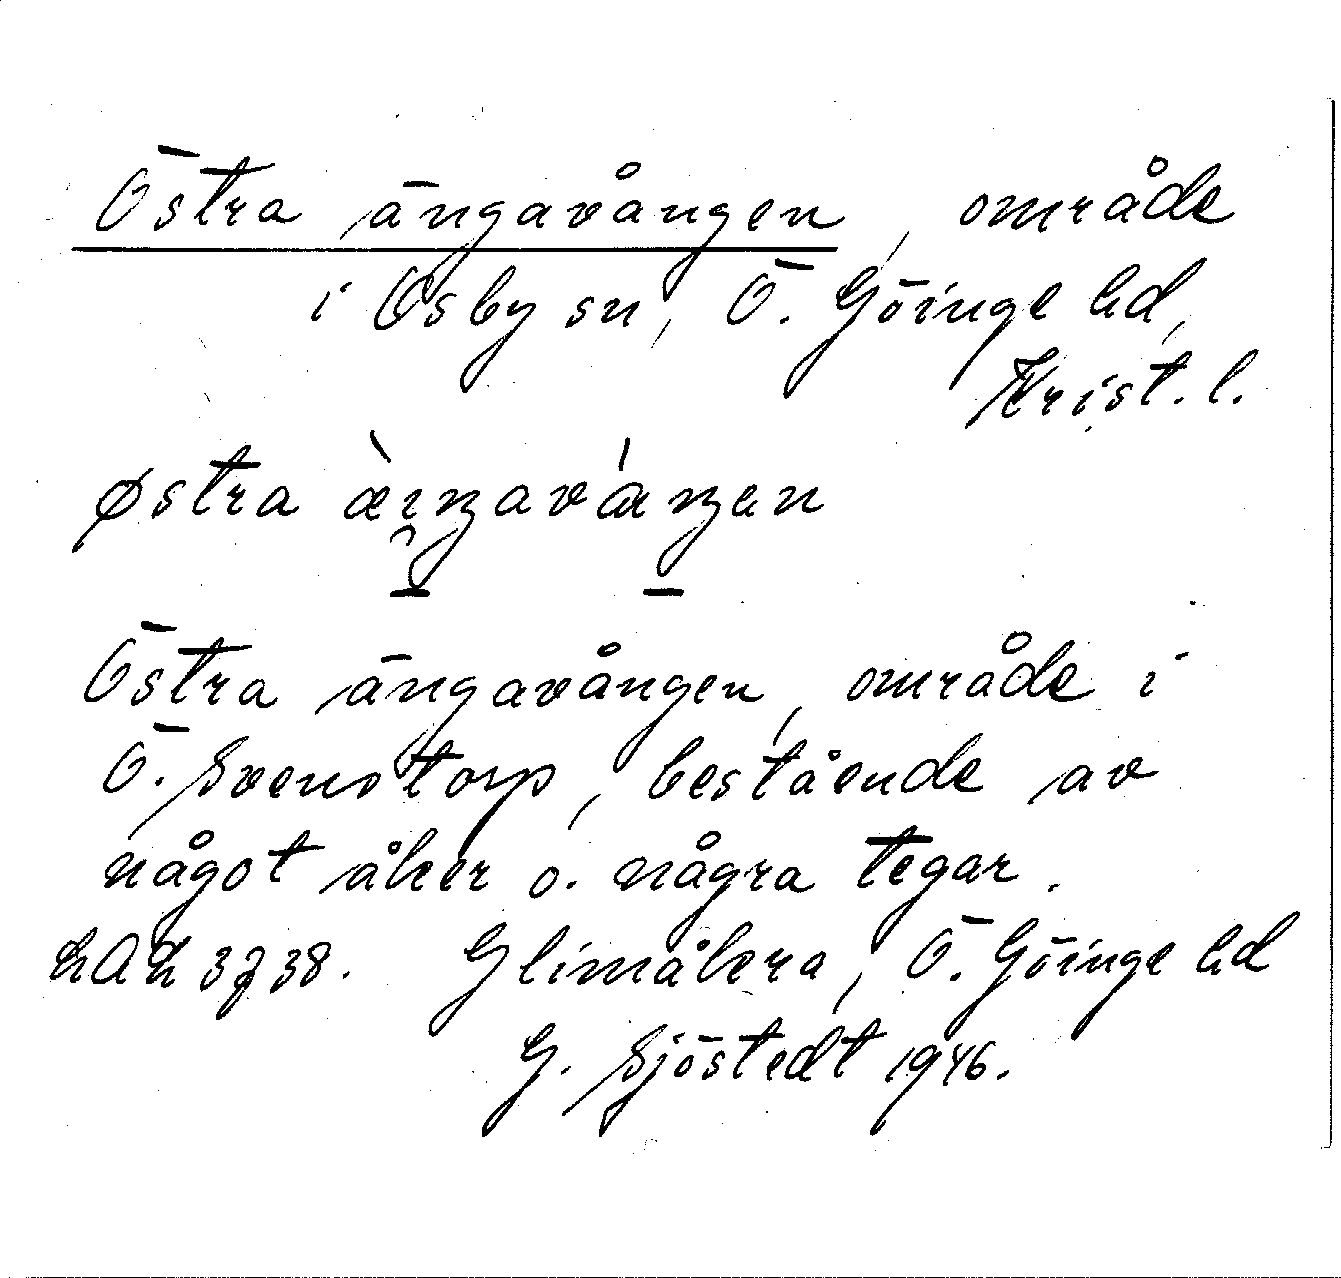 Östra ängavången, område
i Osby sn, Ö. Göinge hd,
Krist. l.
østra
Östra ängavången, område i
Ö. Svenstorp, bestående av
något åker o. några tegar.
LAL 3738. Glimåkra, Ö. Göinge hd
G. Sjöstedt 1946.